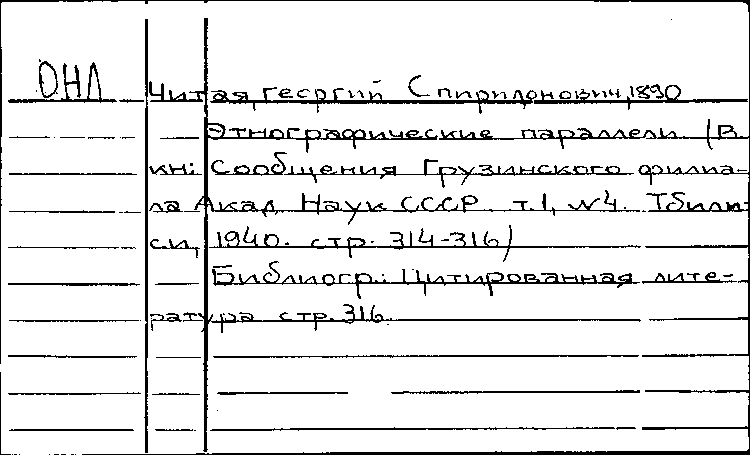 ОНЛ
Читая, Георгий Спиридонович, 1890
Этнографические параллели. (В
кн: Сообщения Грузинского филиа-
ла Акад. Наук СССР. т.1, №4. Тбили-
си, 1940. стр. 314-316)
Библиогр.: Цитированная лите-
ратура стр. 316.